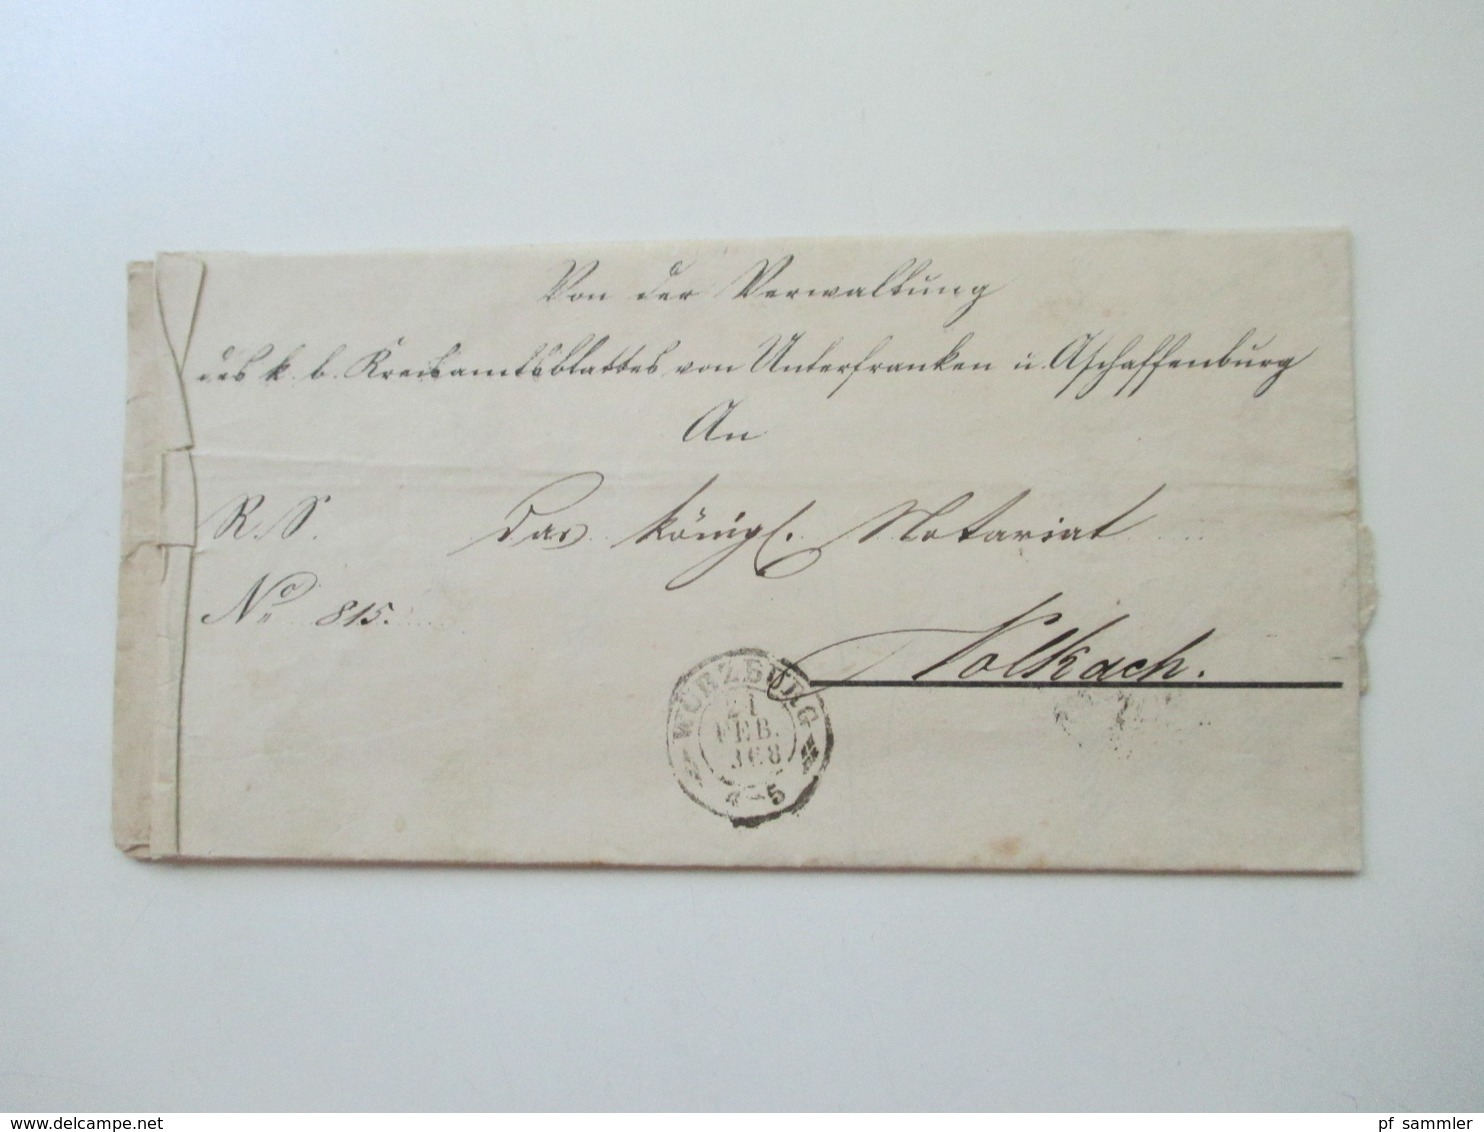 Von der Verwaltung
des k. b. Kreisamtsblattes von Unterfranken u. Aschaffenburg
An
R. S. Das königl. Notariat
No 815.
Volkach.
WÜRZBURG
21
FEB.
868
4-5
pf sammler